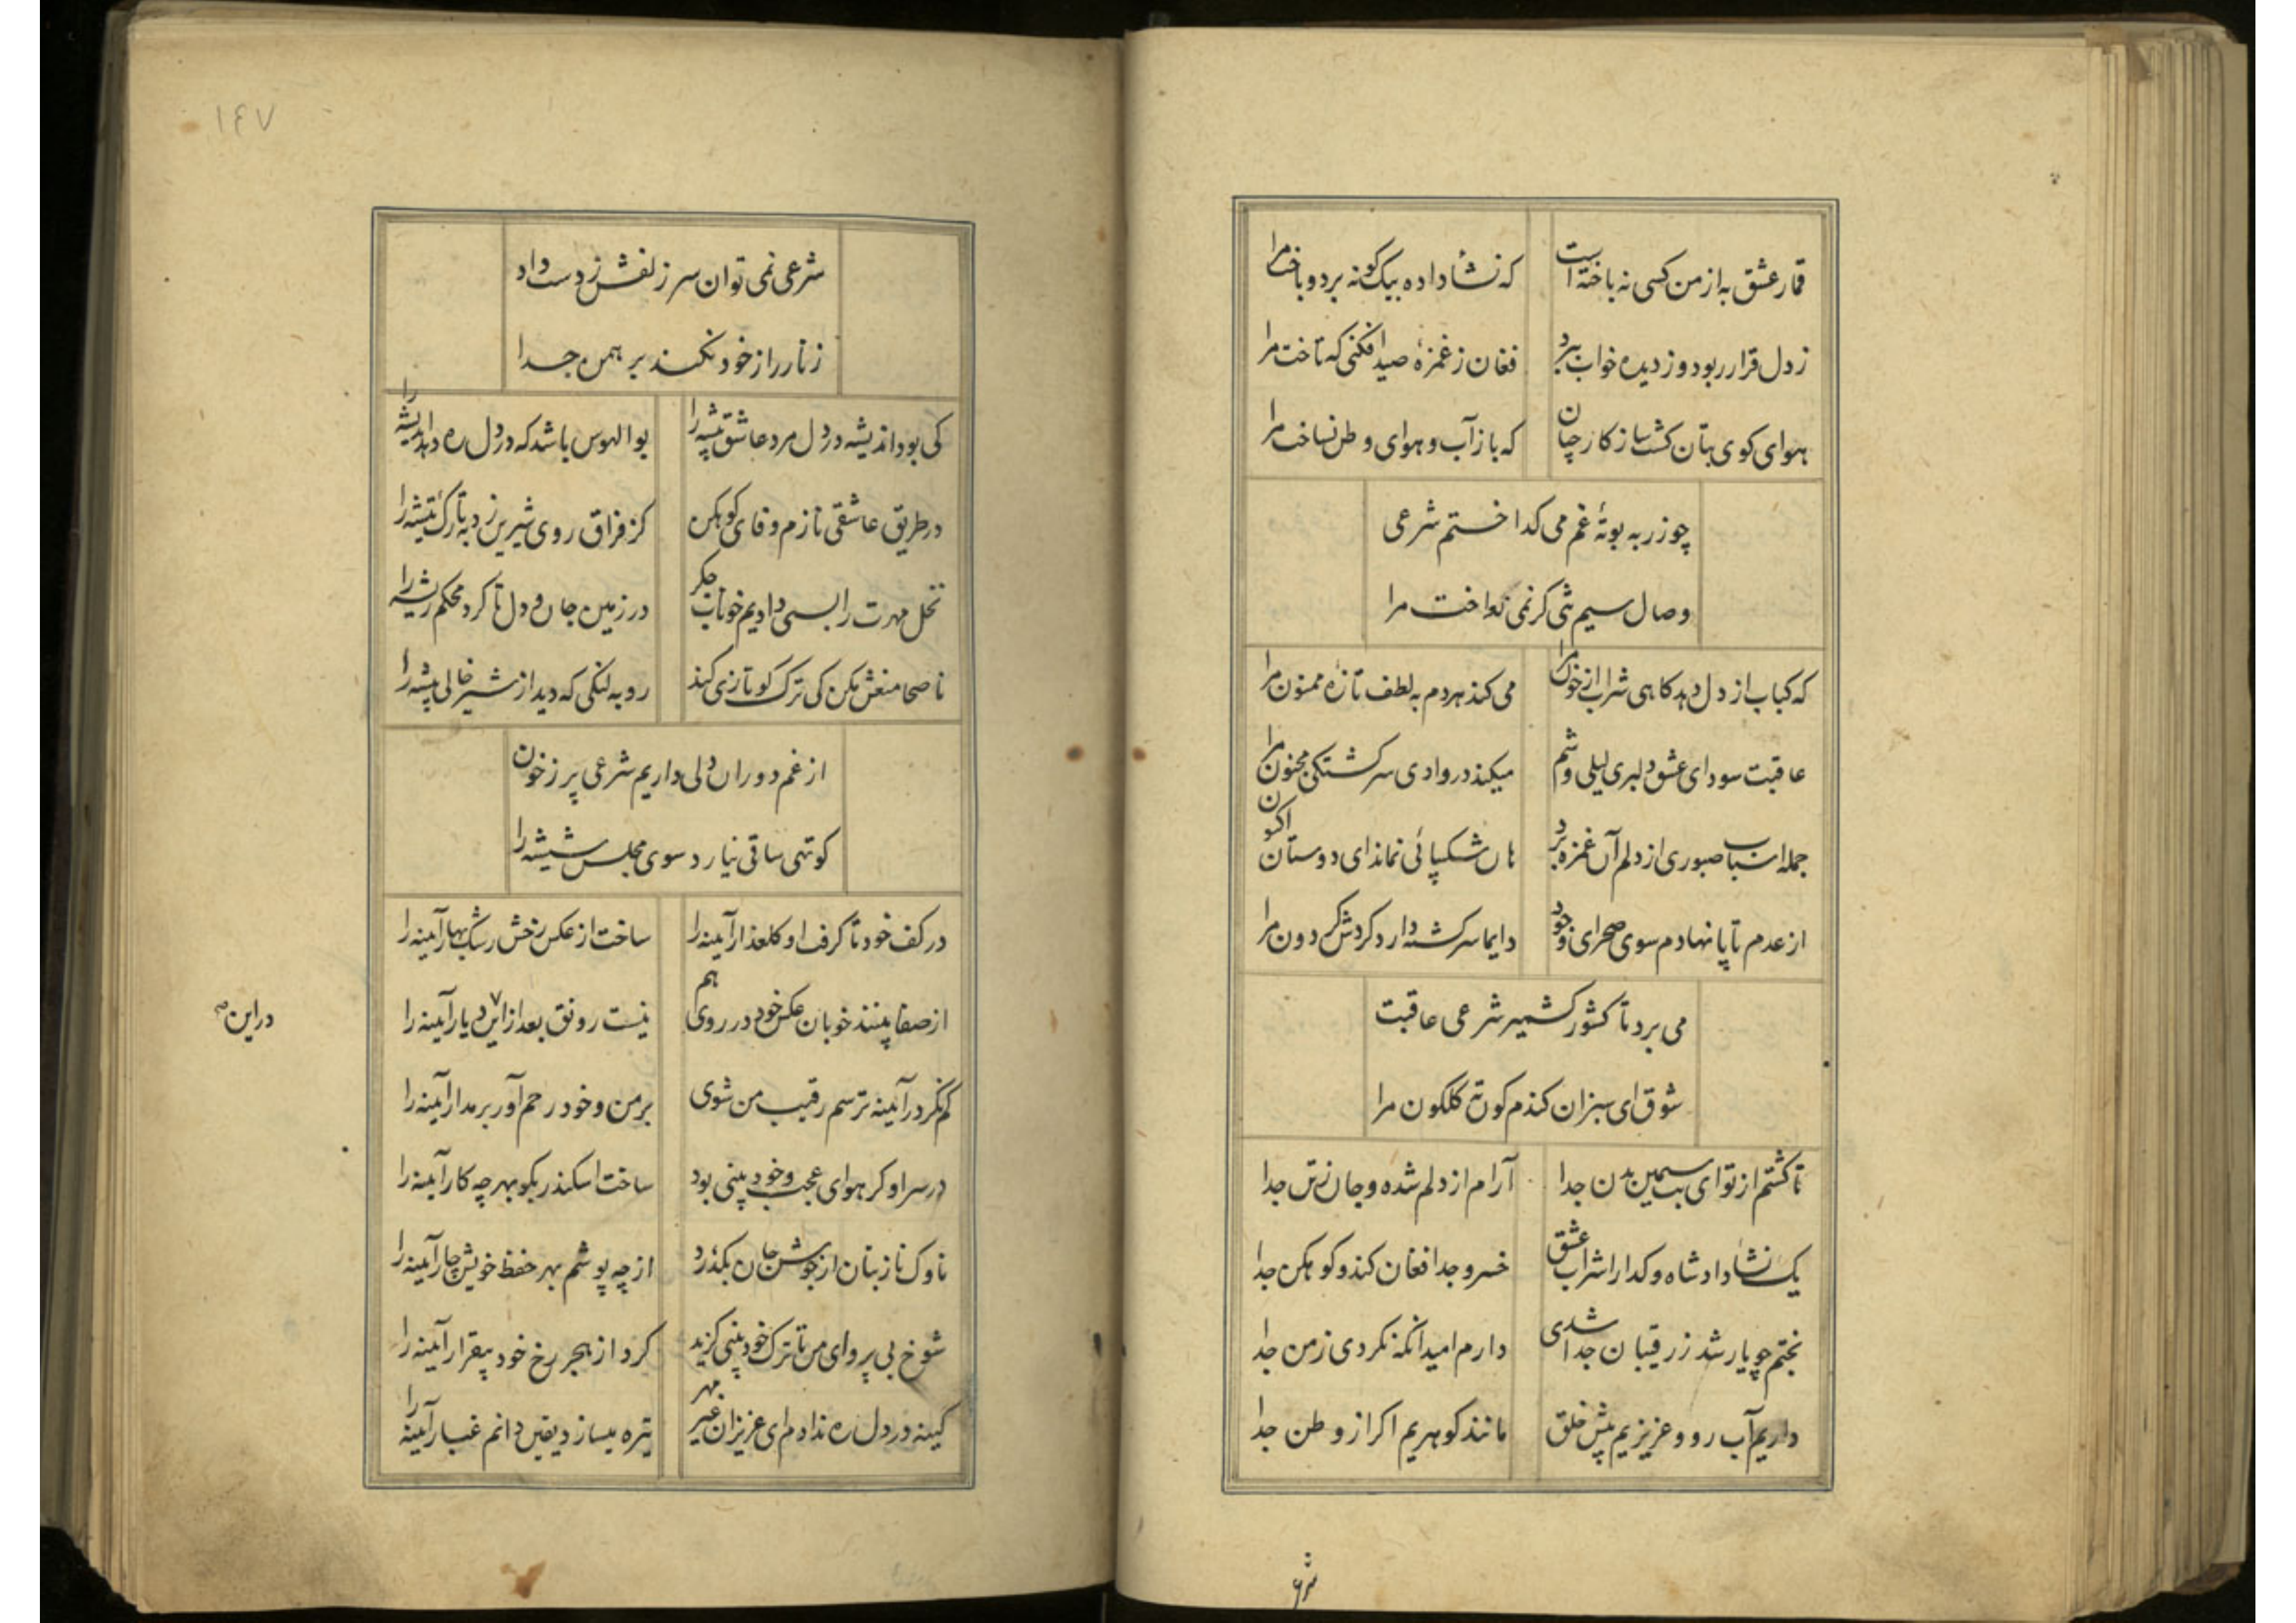 قمار عشق به از من کسی نه باخته است که نشاء داده بیک کونه برد و باخت مرا
ز دل قرار ربود و ز دیده خواب ببرد فغان ز غمزهٔ صید افکنی که تاخت مرا
هوای کوی بتان کشت ساز کار چنان که باز آب و هوای وطن نساخت مرا
چو زر به بوتهٔ غم می کداختم شرعی
وصال سیم تنی کر نمی نواخت مرا
که کباب از دل دهد کاهی شراب از خون مرا می کند هر دم به لطف تازه ممنون مرا
عاقبت سودای عشق دلبری لیلی وشم میکند در وادی سرکشتکی مجنون مرا
جمله اسباب صبوری از دلم آن غمزه برد هان شکیبائی نماند ای دوستان اکنون
از عدم تا پا نهادم سوی صحرای وجود دایما سرکشته دارد کردش کردون مرا
می برد تا کشور کشمیر شرعی عاقبت
شوق ای سبزان کندم کونهٔ کلکون مرا
تا کشتم از تو ای بت سیمین بدن جدا آرام از دلم شده و جان ز تن جدا
یک نشاء داد شاه و کدا را شراب عشق خسرو جدا فغان کند و کوهکن جدا
بختم چو یار شد ز رقیبان جدا شدی دارم امید آنکه نکردی ز من جدا
داریم آب رو و عزیزیم پیش خلق مانند کوهریم اکر از وطن جدا
شرعی
۱۴۷
شرعی نمی توان سر زلفش ز دست داد
زنار را ز خود نکند برهمن جدا
کی بود اندیشه در دل مرد عاشق پیشه را بوالهوس باشد که در دل ره دهد اندیشه را
در طریق عاشقی نازم وفای کوهکن کز فراق روی شیرین زد به تارک تیشه را
نخل مهرت را بسی دادیم خوناب جکر در زمین جان و دل تا کرد محکم ریشه را
ناصحا منعش مکن کی ترک کو تازی کند روبه لنکی که دید از شیر خالی بیشه را
از غم دوران دلی داریم شرعی پر ز خون
کوتهی ساقی نیارد سوی مجلس شیشه را
در کف خود تا کرفت او کلعذار آیینه را ساخت از عکس رخش رشک بهار آیینه را
از صفا بینند خوبان عکس خود در روی هم نیست رونق بعد ازین ۷ دیار آیینه را
دراین صح
کم نکر در آیینه ترسم رقیب من شوی بر من و خود رحم آور بر مدار آیینه را
در سر او کر هوای عجب و خود بینی بود ساخت اسکندر بکو بهر چه کار آیینه را
ناوک ناز بتان از جوشن جان بکذرد از چه پوشم بهر حفظ خویش چار آیینه را
شوخ بی پروای من تا ترک خود بینی کزید کرد از هجر رخ خود بیقرار آیینه را
کینه در دل ره ندادم ای عزیزان غیر مهر تیره میسازد یقین دانم غبار آیینه را